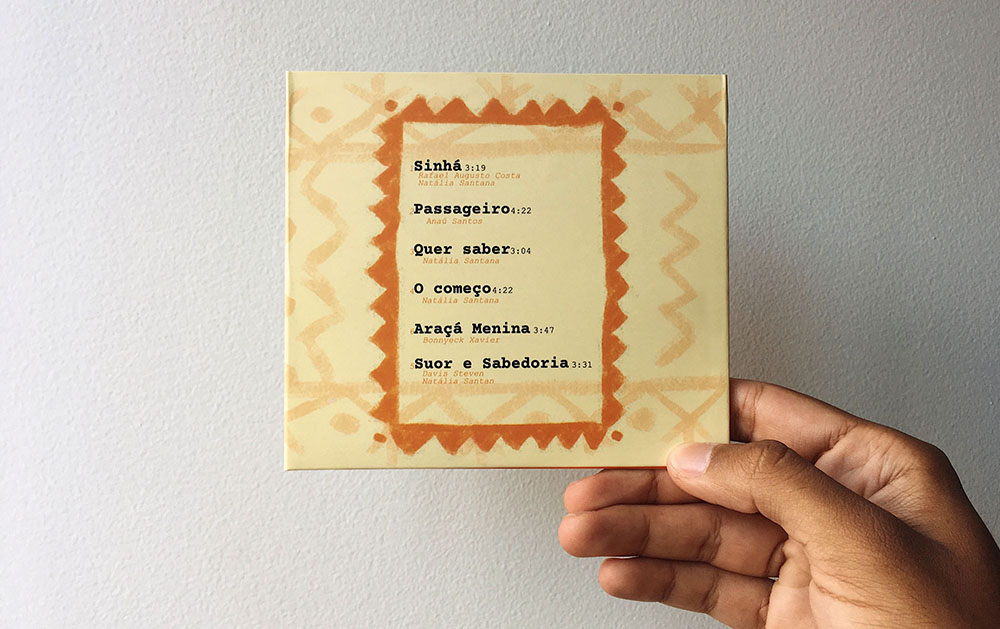 Sinhá 3:19
Rafael Augusto Costa
Natália Santana
Passageiro 4:22
Anaú Santos
Quer saber 3:04
Natália Santana
O começo 4:22
Natália Santana
Araçá Menina 3:47
Bonnyeck Xavier
Suor e Sabedoria 3:31
Davis Steven
Natália Santan